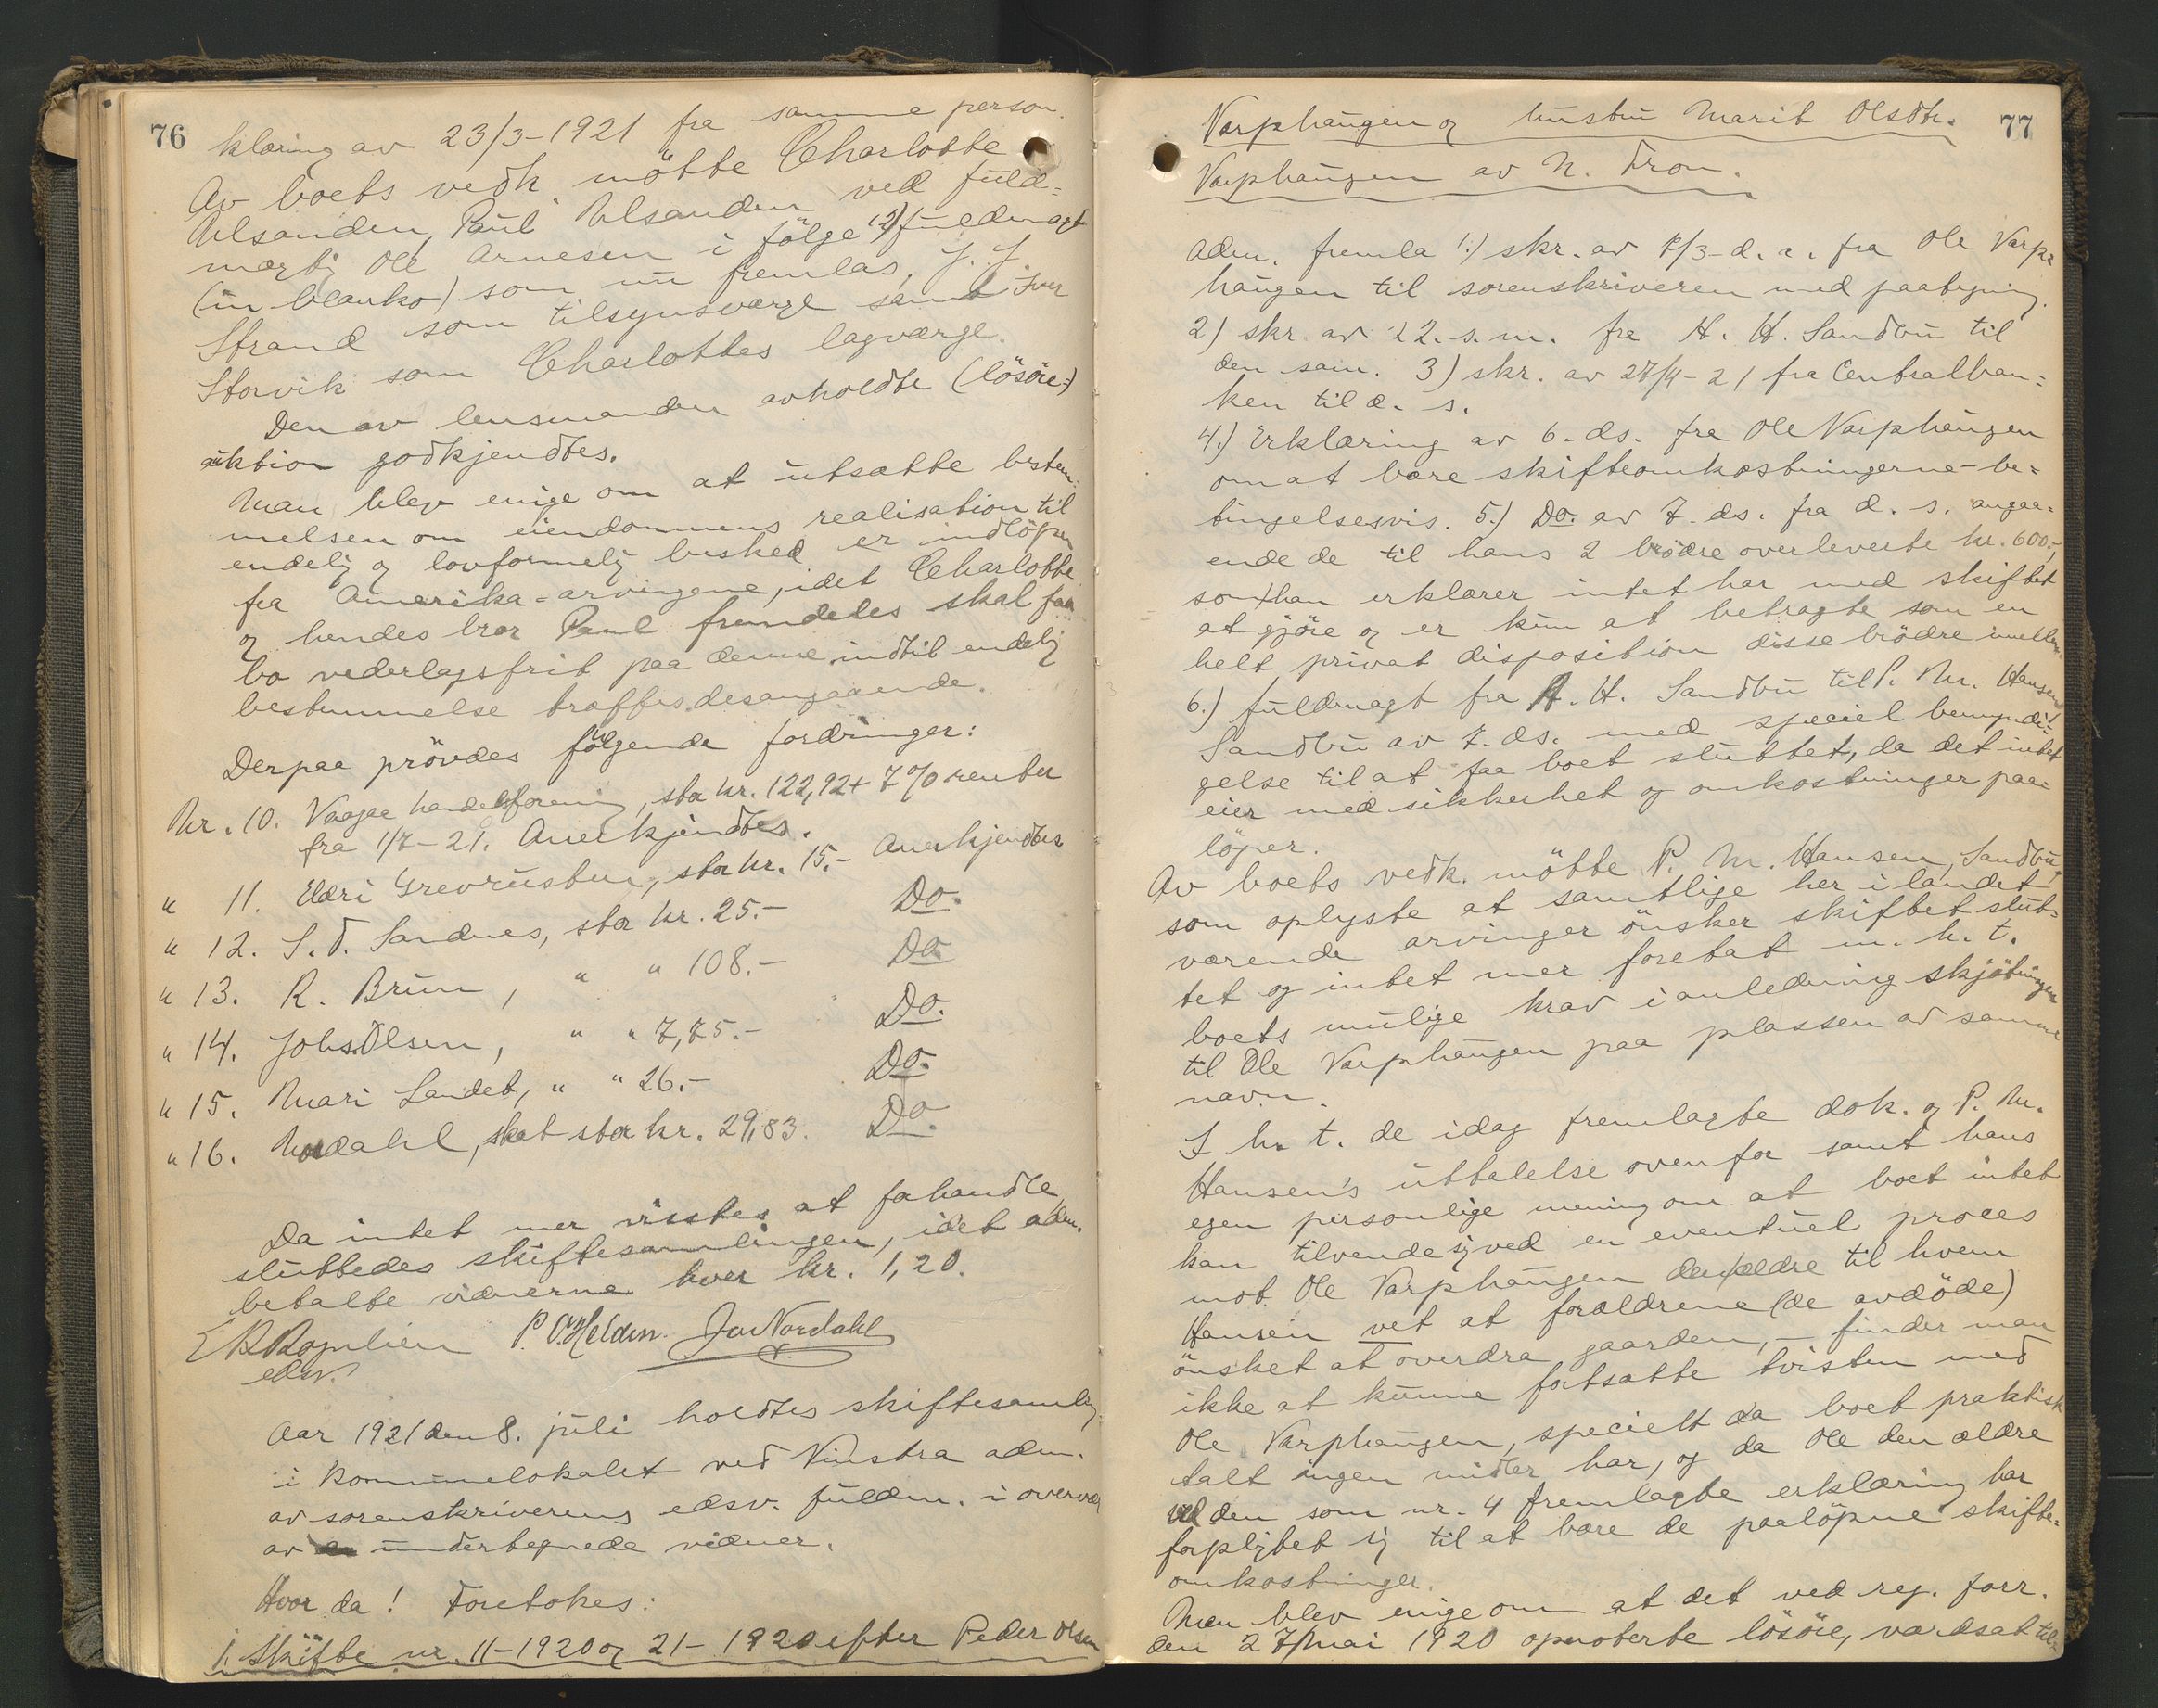 76
klæring av 23/3-1921 fra samme person.
Av boets vedk. møtte Charlotte
Ulsanden, Paul Ulsanden ved fuld=
mægtig Ole Arnesen i følge 12) fuldmagt
(in blanko) som nu fremlas, J. J.
Strand som tilsynsværge samt Iver
Storvik som Charlottes lagværge.
Den av lensmanden avholdte (løsøre=)
auktion godkjendtes.
Man blev enige om at utsætte bestem=
melsen om eiendommens realisation til
endelig og lovformelig besked er indløpen
fra Amerika-arvingene, idet Charlotte
og hendes bror Paul fremdeles skal faa
bo vederlagsfrit paa denne indtil endelig
bestemmelse træffes desangaaende.
Derpaa prøvdes følgende fordringer:
Nr. 10. Vaagaa handelsforening, stor kr. 122,92 + 7 % renter
fra 1/7-21. Anerkjendtes.
" 11. Eldri Grevrusten, stor kr. 15.- Anerkjendtes
" 12. S. T. Sandnes, stor kr. 25.- Do.
" 13. R. Brun, " " 108.- Do.
" 14. Johs. Olsen, " " 7,75.- Do.
" 15. Mari Landet, " " 26.- Do.
" 16. Nordahl, skat stor kr. 29,83. Do.
Da intet mer visstes at forhandle,
sluttedes skiftesamlingen, idet adm.
betalte vidnerne hver kr. 1,20.
P. O. Helden. Jon Nordahl
edsv.
Aar 1921 den 8. juli holdtes skiftesamling
i kommunelokalet ved Vinstra adm.
av sorenskriverens edsv. fuldm. i overvær
av undertegnede vidner.
Hvor da! Foretokes:
1. Skifte nr. 11-1920 og 21-1920 efter Peder Olsen
77
Varphaugen og hustru Marit Olsdtr.
Varphaugen av N. Fron.
Adm. fremla 1.) skr. av 8/3- d. a. fra Ole Varp=
haugen til sorenskriveren med paategning.
2) skr. av 22. s. m. fra H. H. Sandbu til
den sam. 3) skr. av 27/4-21 fra Centralban=
ken til d. s.
4.) Erklæring av 6. ds. fra Ole Varphaugen
om at bære skifteomkostningerne - be=
tingelsesvis. 5.) Do. av 7. ds. fra d. s. angaa=
ende de til hans 2 brødre overleverte kr. 600.-,
som han erklærer intet har med skiftet
at gjøre og er kun at betragte som en
helt privat disposition disse brødre imellem.
6.) Fuldmagt fra H. H. Sandbu til P. M. Hansen
Sandbu av 7. ds. med speciel bemyndi=
gelse til at faa boet sluttet, da det intet
eier med sikkerhet og omkostninger paa=
løper.
Av boets vedk. møtte P. M. Hansen, Sandbu,
som oplyste at samtlige her i landet
værende arvinger ønsker skiftet slut=
tet og intet mer foretat m. h. t.
boets mulige krav i anledning skjøtningen
til Ole Varphaugen paa plassen av samme
navn.
I h. t. de idag fremlagte dok. og P. M.
Hansen's uttalelse ovenfor samt hans
egen personlige mening om at boet intet
kan tilvende sig ved en eventuel proces
mot Ole Varphaugen den ældre til hvem
Hansen vet at forældrene (de avdøde)
ønsket at overdra gaarden, - finder man
ikke at kunne fortsætte tvisten med
Ole Varphaugen, specielt da boet praktisk
talt ingen midler har, og da Ole den ældre
ved den som nr. 4 fremlagte erklæring har
forpligtet sig til at bære de paaløpne skifte=
omkostninger.
Man blev enige om at det ved reg. forr.
den 27/mai 1920 opnoterte løsøre, værdsat til